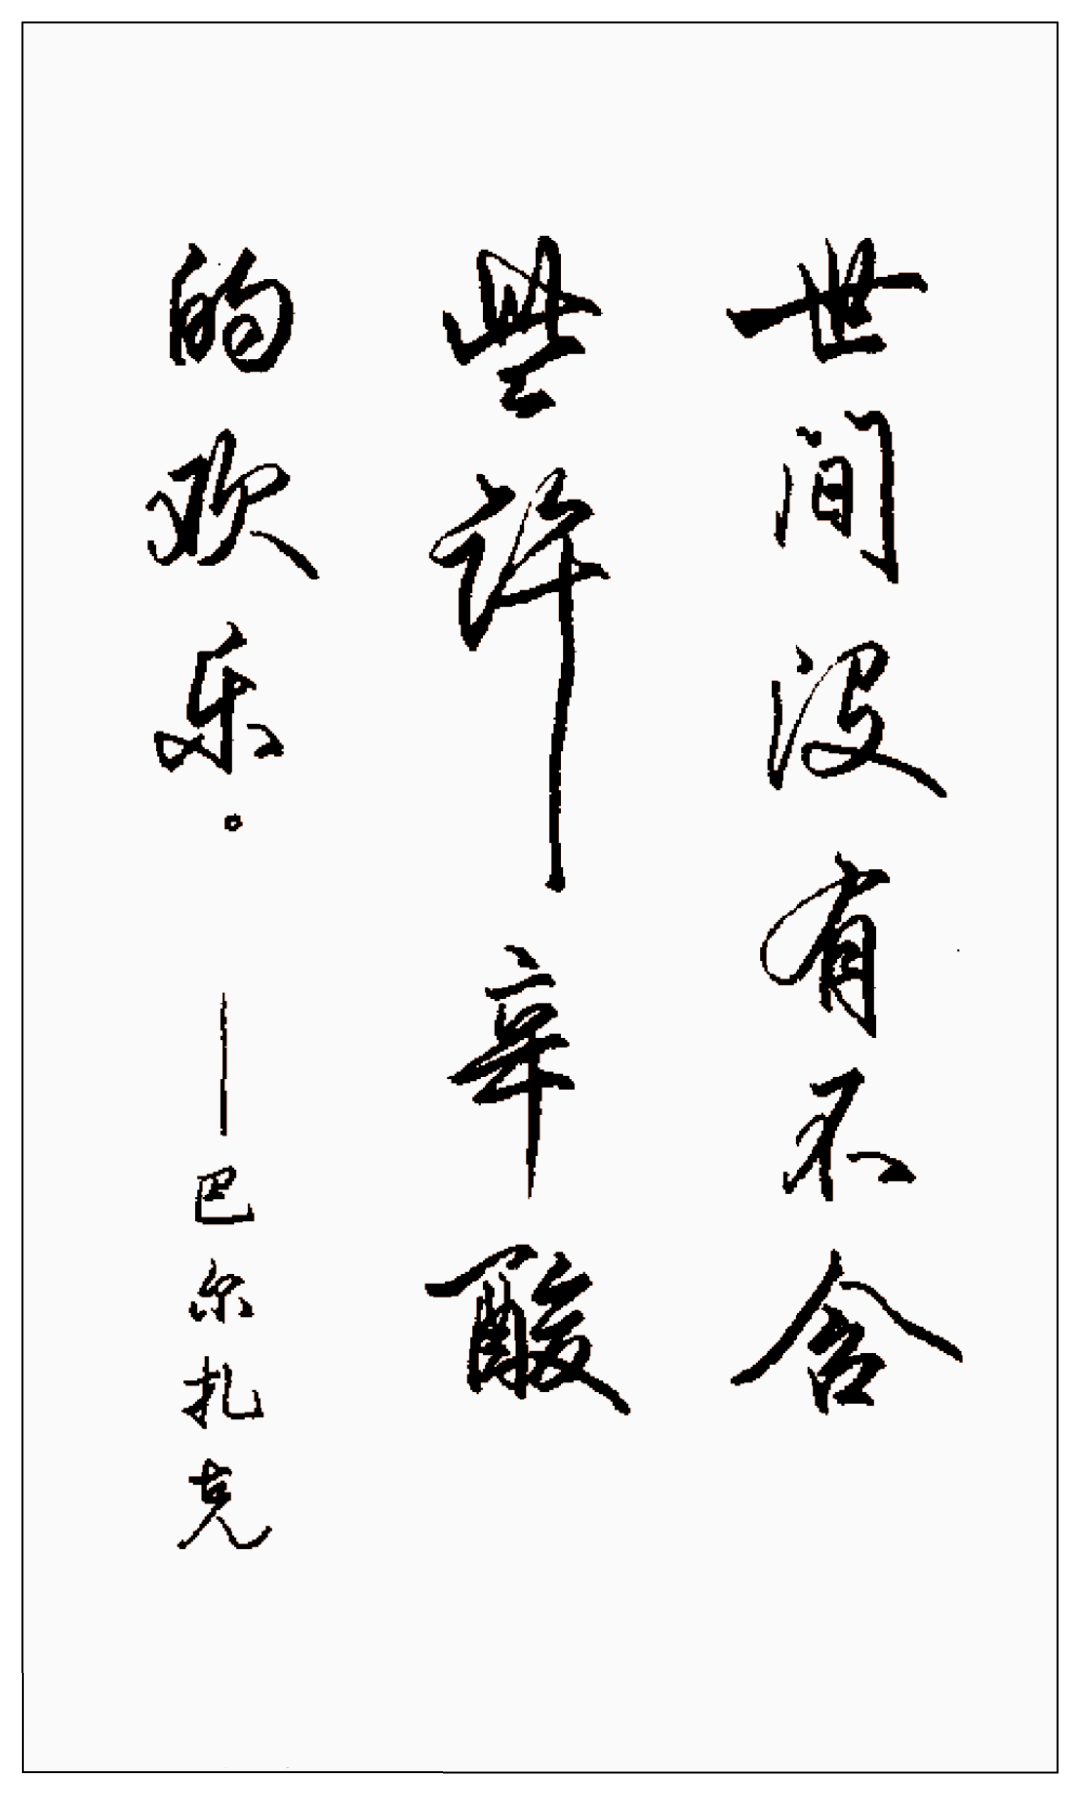 世间没有不含
些许辛酸
的欢乐。 ——巴尔扎克